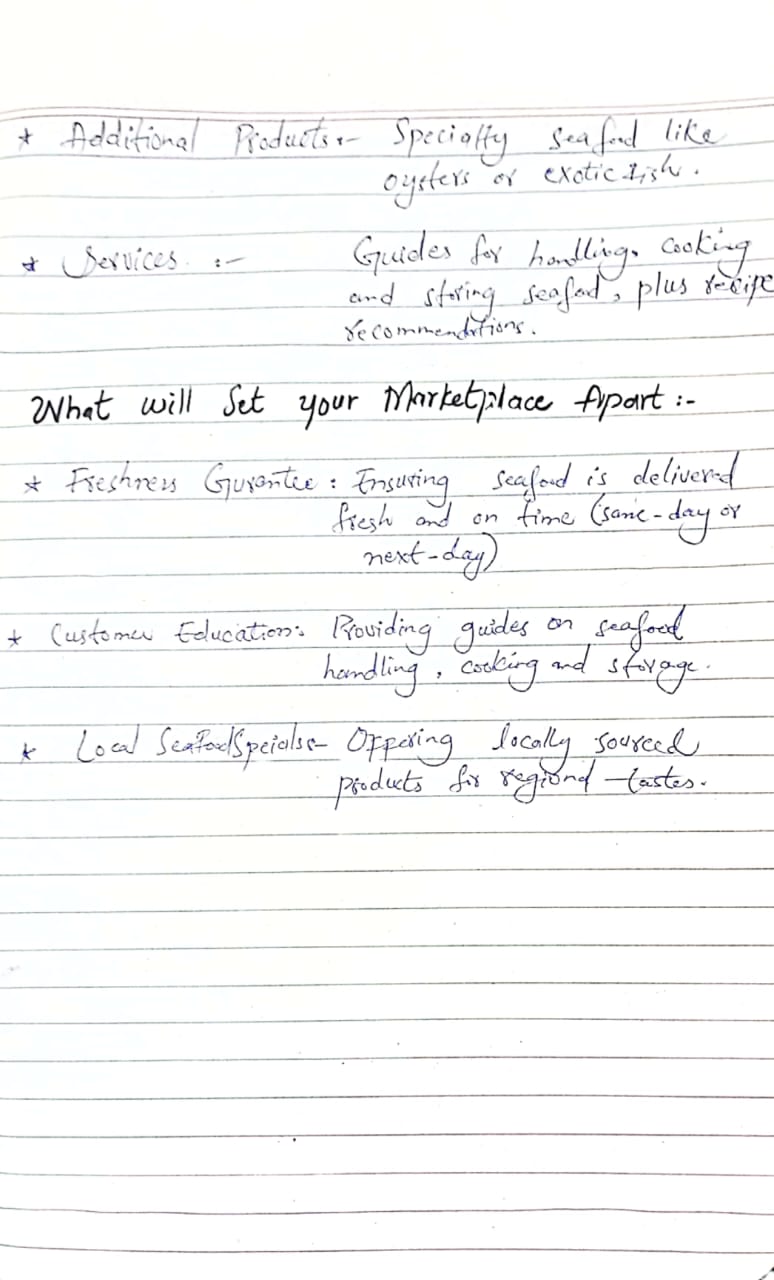 * Additional Products:- Specialty seafood like
oysters or exotic fish.
* Services :- Guides for handling, cooking
and storing seafood, plus recipe
recommendations.
What will Set your Marketplace Apart :-
* Freshness Gurantee : Ensuring seafood is delivered
fresh and on time (same-day or
next-day)
* Customer Education: Providing guides on seafood
handling, cooking and storage.
* Local SeaFood Speials:- Offering locally sourced
products for regional tastes.